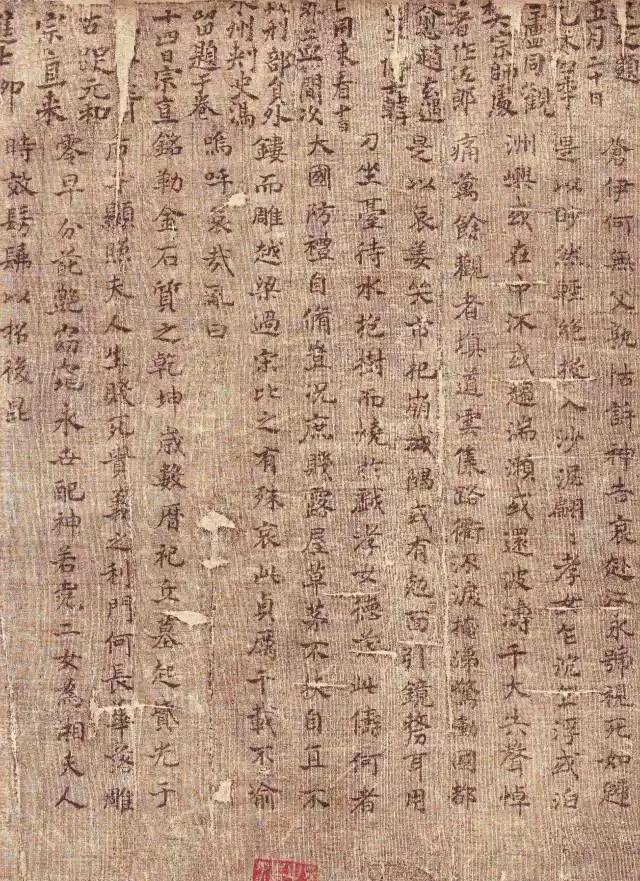 五月二十日
盧同觀
宗師
著作佐郎
愈趙玄遇
韓
同來看
刑部員外
州刺史馮
留題于卷
十四日宗直
元和
宗直來
蒼伊何無父孰怙訴神告哀赴江永號視死如歸
是以眇然輕絕投入沙泥翩〻孝女乍沉乍浮或泊
洲嶼或在中流或趨湍瀨或還波濤千夫失聲悼
痛萬餘觀者填道雲集路衢泣淚掩涕驚動國都
是以哀姜哭市杞崩城隅或有剋面引鏡剺耳用
刀坐臺待水抱樹而燒於戲孝女德茂此儔何者
大國防禮自脩豈況庶賤露屋草茅不扶自直不
鏤而雕越梁過宋比之有殊哀此貞厲千載不渝
嗚呼哀哉亂曰
銘勒金石質之乾坤歲數曆祀立墓起墳光于
后土顯照夫人生賤死貴義之利門何長華落雕
零早分葩艷窈窕永世配神若堯二女為湘夫人
時效髣髴以招後昆